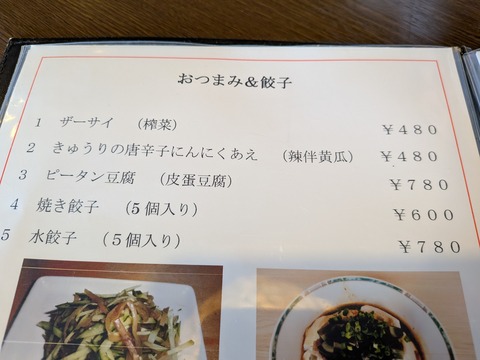 おつまみ＆餃子
1 ザーサイ （榨菜） ￥４８０
2 きゅうりの唐辛子にんにくあえ （辣伴黄瓜） ￥４８０
3 ピータン豆腐 （皮蛋豆腐） ￥７８０
4 焼き餃子 （5個入り） ￥６００
5 水餃子 （５個入り） ￥７８０